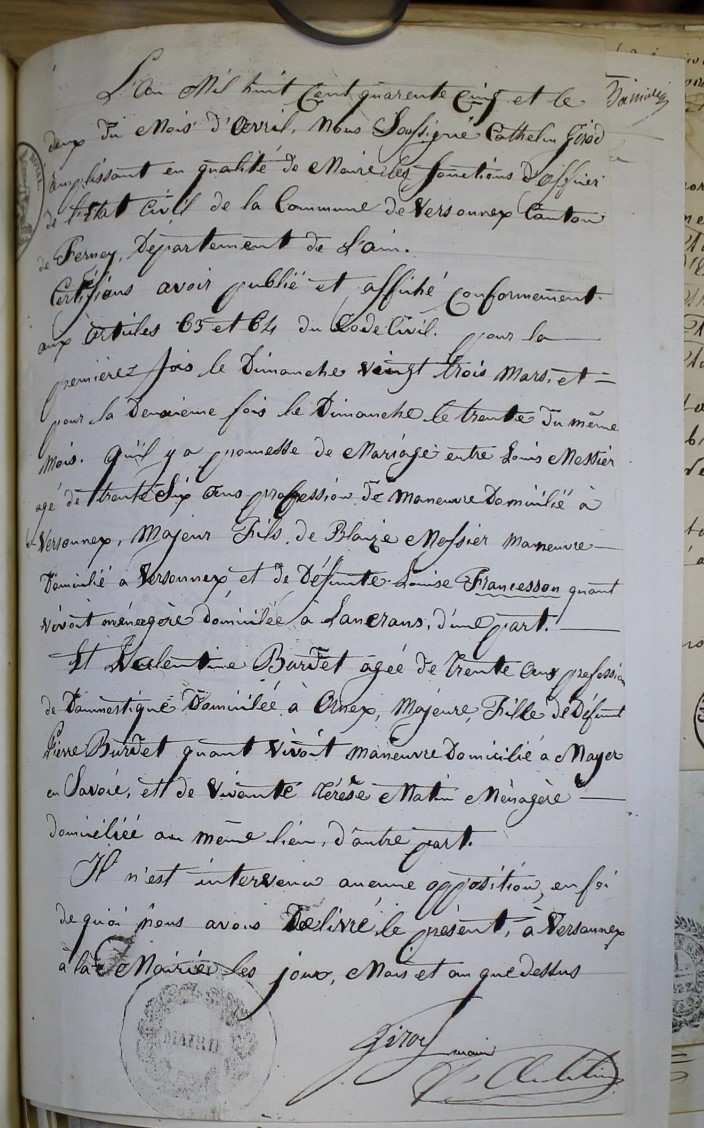 L'an Mil huit Cent quarente Cinq et le
deux du Mois d'Avril, Nous Soussigné Cathelin Girod
emplissant en qualité de Maire les fonctions d'officier
de l'Etat Civil de la Commune de Versonnex Canton
de Ferney, Département de L'ain.
Certifions avoir publié et affiché conformement
aux articles 63 et 64 du Code Civil. pour la
premierez fois le Dimanche vingt trois Mars, et
pour la Deuxieme fois le Dimanche le trente du même
Mois. qu'il y a promesse de Mariage entre Louis Messier
agé de trente Six ans profession de maneuvre Domicilié à
Versonnex, Majeur Fils, de Blaize Messier maneuvre
Domicilié à Versonnex et de Défunte Louise Francesson quant
vivoit ménagère domiciliée à Lancrans, d'une part.
Et Valentine Burdet agée de trente ans profession
de Dommestique Domiciliée à Ornex, Majeure, Fille de Défunt
Pierre Burdet quant vivoit maneuvre Domicilié à
en Savoie, et de vivante Térèse Matin Ménagère
domiciliée au même lieu, d'autre part.
Il n'est intervenu aucune opposition, en foi
de quoi nous avons Délivré le présent, à Versonnex
à la Mairie les jour, Mois et an que dessus
Girod
maire
MAIRIE